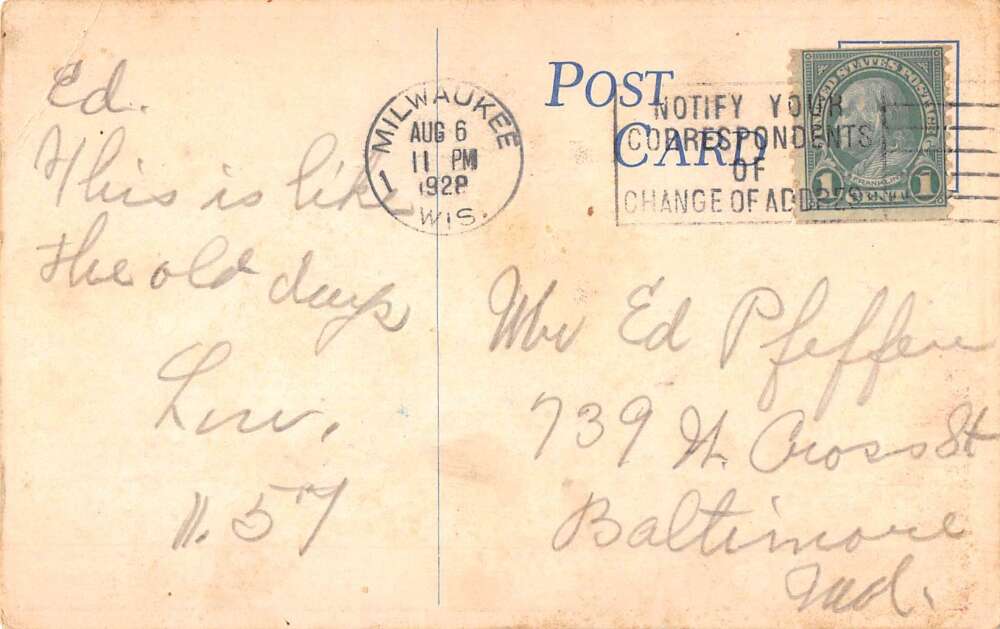 Ed.
This is like
the old days
Lew.
11.57
POST
CARD
MILWAUKEE
AUG 6
11 PM
1928
WIS.
1
NOTIFY YOUR
CORRESPONDENTS
OF
CHANGE OF ADDRESS
UNITED STATES POSTAGE
FRANKLIN
1 CENT 1
Mr Ed Pfeffer
739 W. Cross St
Baltimore
Md.